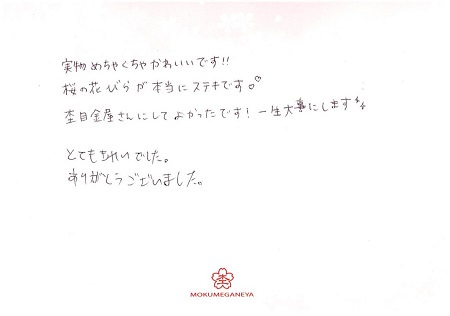 実物めちゃくちゃかわいいです!!
桜の花びらが本当にステキです♡
杢目金屋さんにしてよかったです!一生大事にします
とてもきれいでした。
ありがとうございました。
MOKUMEGANEYA